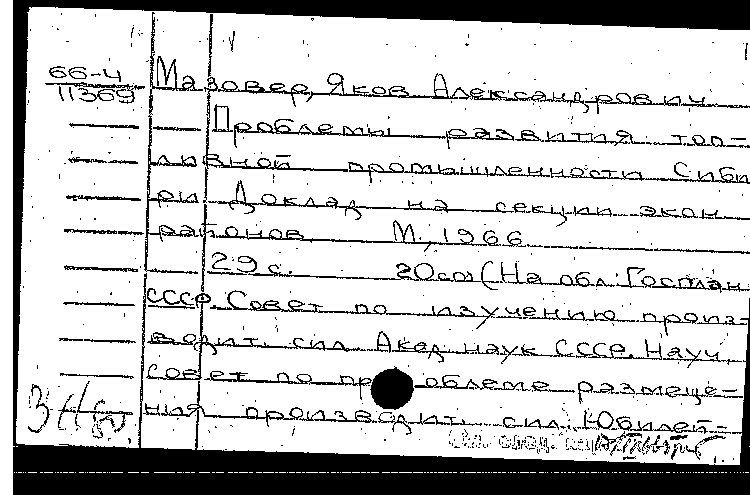 66-4
11369
Мазовер, Яков Александрович
Проблемы развития топ-
ливной промышленности Сиби
ри Доклад на секции экон.
районов. М., 1966
29 с. 20 см (На обл: Госплан
СССР. Совет по изучению произ-
водит. сил. Акад. наук СССР. Науч.
совет по проблеме размеще-
ния производит. сил. Юбилей-
см. след.